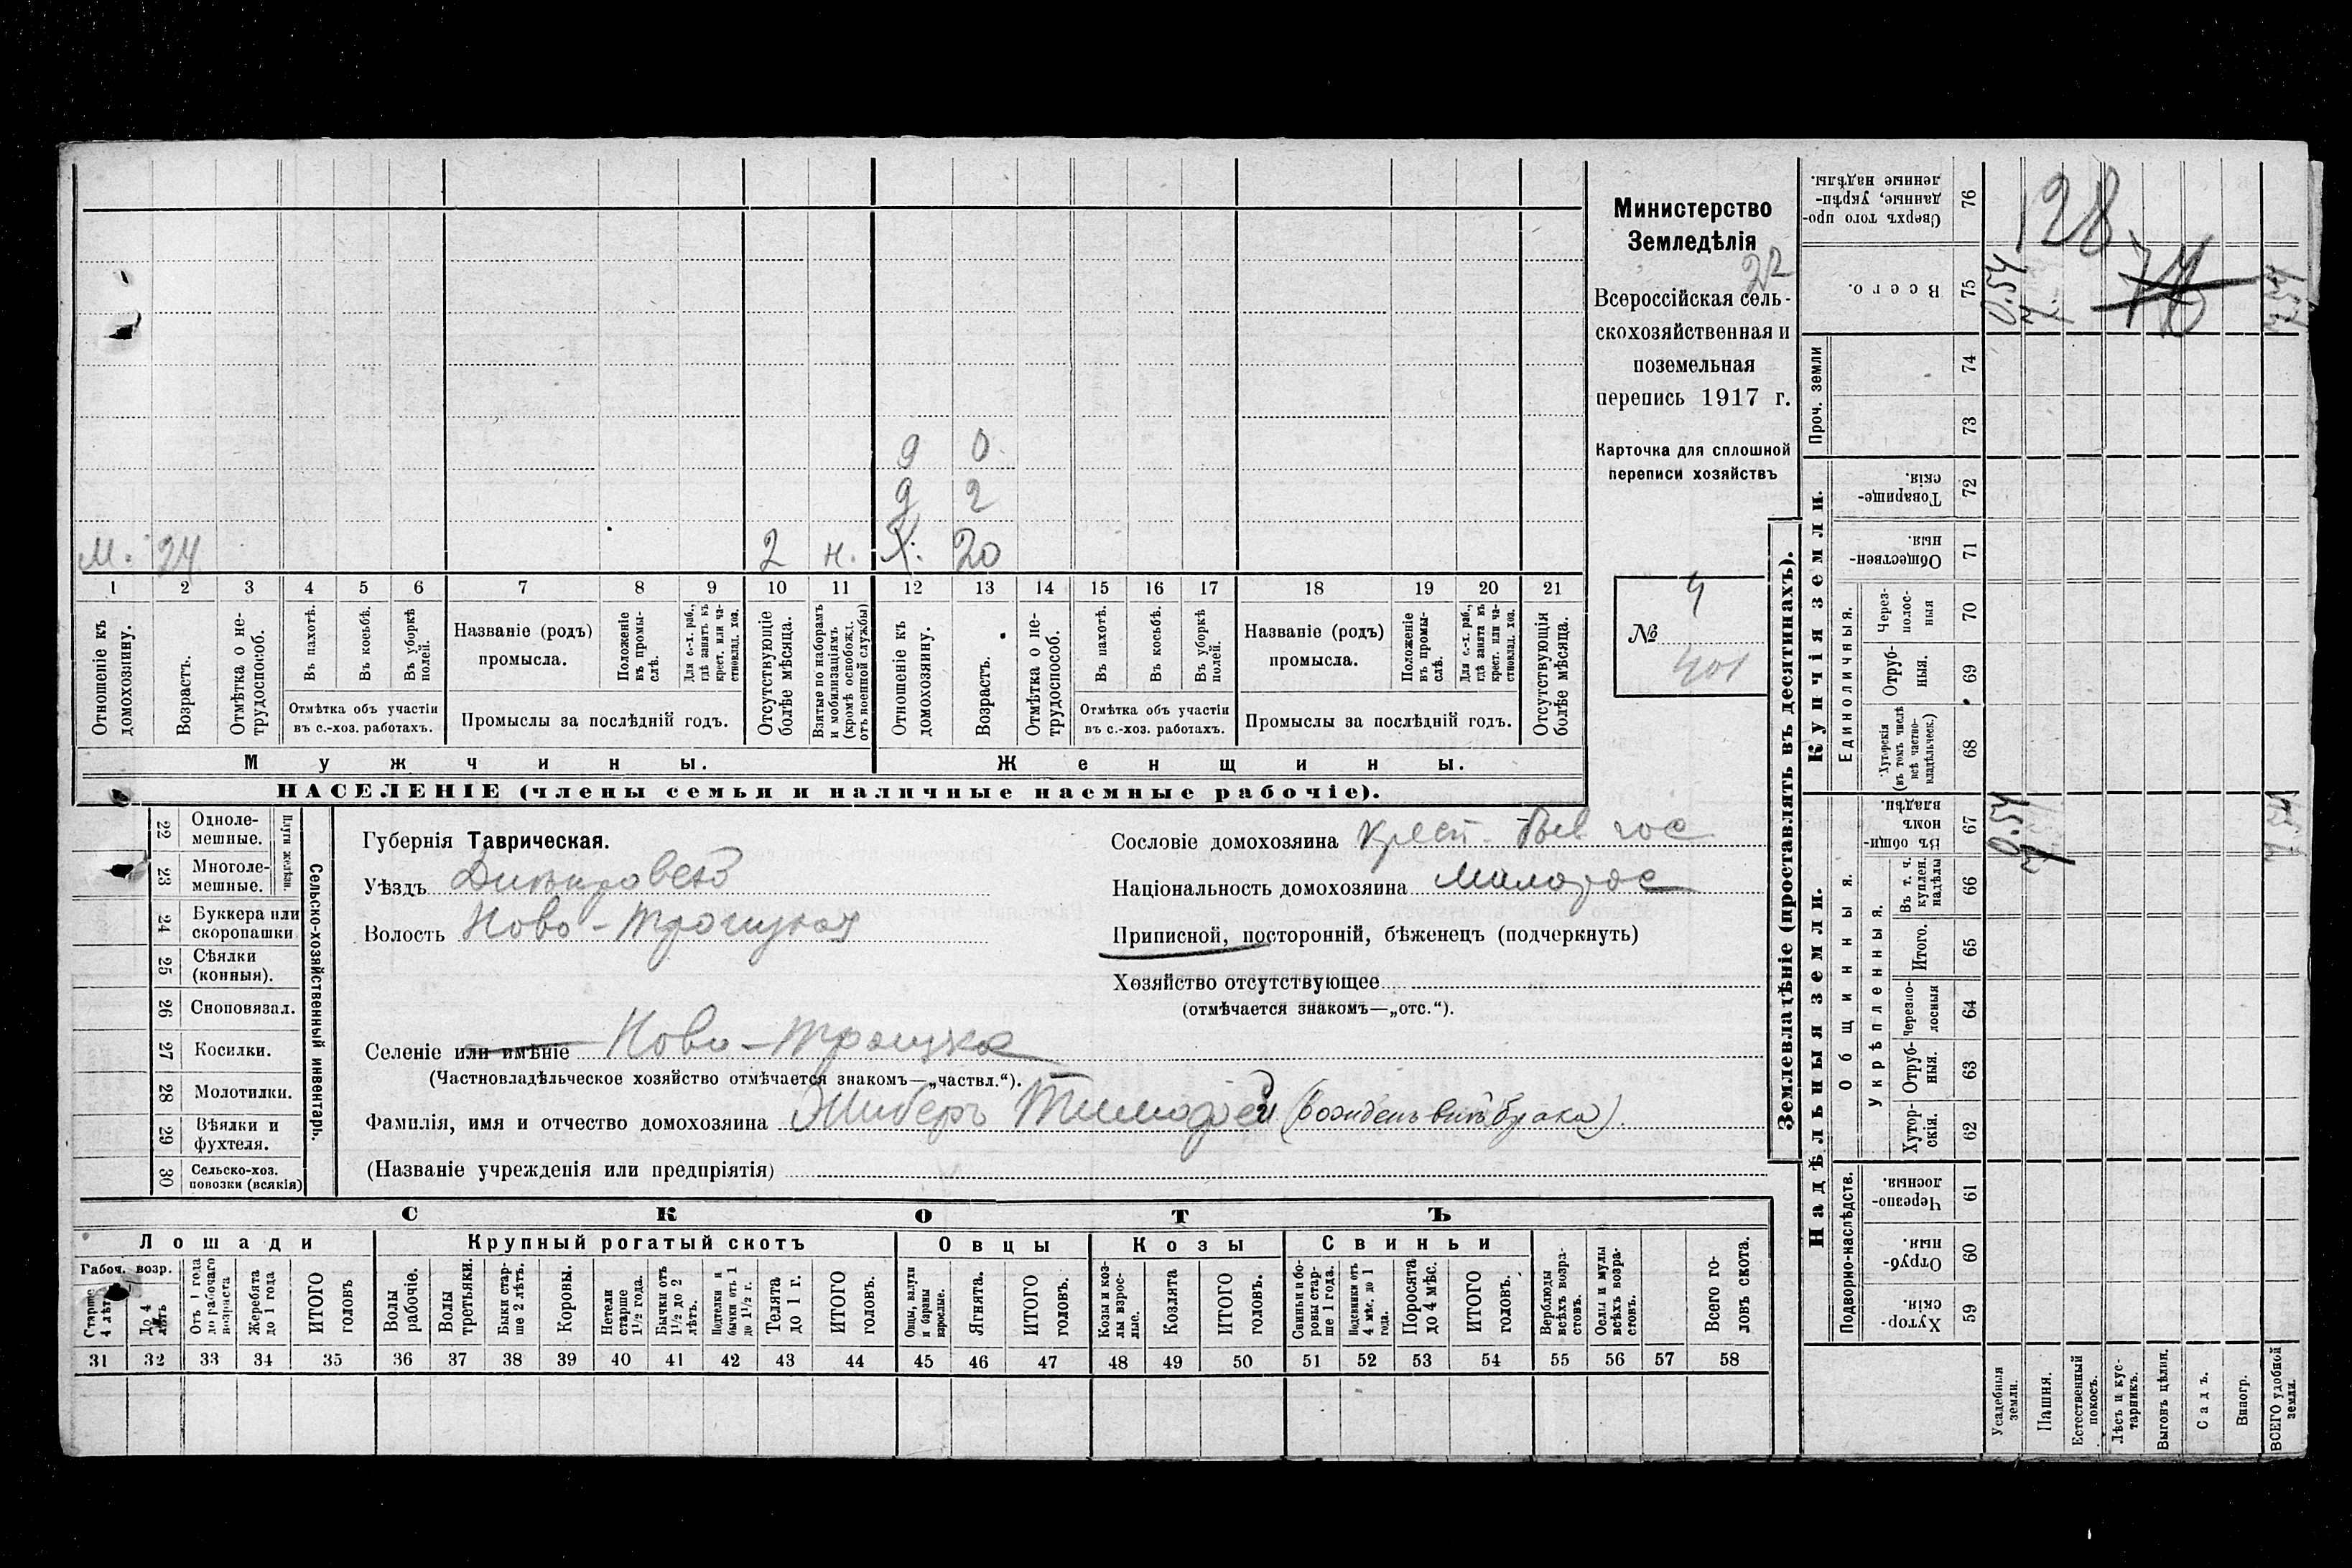 9 0
9 2
м. 24 2 н. 20
1 2 3 4 5 6 7 8 9 10 11 12 13 14 15 16 17 18 19 20 21
Отношеніе къ домохозяину.
Возрастъ.
Отмѣтка о не-
трудоспособ.
Въ пахотѣ.
Въ косьбѣ.
Въ уборкѣ полей.
Отмѣтка объ участіи
въ с.-хоз. работахъ.
Названіе (родъ)
промысла.
Положеніе въ промы-
слѣ.
Для с.-х. раб.,
гдѣ занятъ въ
крест. или ча-
стновлад. хоз.
Промыслы за послѣдній годъ.
Отсутствующіе
болѣе мѣсяца.
Взятые по наборамъ
и мобилизаціямъ
(кромѣ освобожд.
отъ военной службы)
Отношеніе къ
домохозяину.
Возрастъ.
Отмѣтка о не-
трудоспособ.
Въ пахотѣ.
Въ косьбѣ.
Въ уборкѣ полей.
Отмѣтка объ участіи
въ с.-хоз. работахъ.
Названіе (родъ)
промысла.
Положеніе въ промы-
слѣ.
Для с.-х. раб.,
гдѣ занята въ
крест. или ча-
стновлад. хоз.
Промыслы за послѣдній годъ.
Отсутствующія
болѣе мѣсяца.
Мужчины.
Женщины.
НАСЕЛЕНІЕ (члены семьи и наличные наемные рабочіе).
Министерство
Земледѣлія
22
Всероссійская сель-
скохозяйственная и
поземельная
перепись 1917 г.
Карточка для сплошной
переписи хозяйствъ
4
№
401
22 Одноле-
мешные.
23 Многоле-
мешные.
Плуги желѣзн.
24 Буккера или
скоропашки
25 Сѣялки
(конныя).
26 Сноповязал.
27 Косилки.
28 Молотилки.
29 Вѣялки и
фухтеля.
30 Сельско-хоз.
повозки (всякія)
Сельско-хозяйственный инвентарь.
Губернія Таврическая.
Уѣздъ Днѣпровскій
Волость Ново-Троицкая
Селеніе или имѣніе Ново-Троицкое
(Частновладѣльческое хозяйство отмѣчается знакомъ—„частвл.“).
Фамилія, имя и отчество домохозяина Жиберъ Тимофей (рожденъ внѣ брака).
(Названіе учрежденія или предпріятія)
Сословіе домохозяина Крест. быв гос
Національность домохозяина Малорос
Приписной, посторонній, бѣженецъ (подчеркнуть)
Хозяйство отсутствующее
(отмѣчается знакомъ—„отс.“).
СКОТЪ
Лошади
Крупный рогатый скотъ
Овцы
Козы
Свиньи
Рабоч. возр.
Старше
4 лѣтъ
До 4
лѣтъ
Отъ 1 года
до рабочаго
возраста
Жеребята
до 1 года
ИТОГО
головъ
Волы
рабочіе.
Волы
третьяки.
Быки стар-
ше 2 лѣтъ.
Коровы.
Нетели
старше
1½ года.
Бычки отъ
1½ до 2
лѣтъ.
Подтелки и
бычки отъ 1
до 1½ г.
Телята
до 1 г.
ИТОГО
головъ.
Овцы, валухи
и бараны
взрослые.
Ягнята.
ИТОГО
головъ.
Козы и коз-
лы взрос-
лые.
Козлята
ИТОГО
головъ.
Свиньи и бо-
ровы стар-
ше 1 года.
Подсвинки отъ
4 мѣс. до 1
года.
Поросята
до 4 мѣс.
ИТОГО
головъ.
Верблюды
всѣхъ возра-
стовъ.
Ослы и мулы
всѣхъ возра-
стовъ.
Всего го-
ловъ скота.
31 32 33 34 35 36 37 38 39 40 41 42 43 44 45 46 47 48 49 50 51 52 53 54 55 56 57 58
Землевладѣніе (проставлять въ десятинахъ).
Надѣльныя земли.
Купчія земли.
Проч. земли
Подворно-наслѣдств.
Общинныя.
Укрѣпленныя.
Единоличныя.
Сверхъ того про-
данные, укрѣп-
ленные надѣлы.
76
128
Всего.
75
0.54
7.
7.54
74
73
Товарище-
скія.
72
Обществен-
ныя.
71
Через-
полос-
ныя
70
Отруб-
ныя.
69
Хуторскія
(въ томъ числѣ
всѣ частно-
владѣльческ.)
68
Въ общин-
номъ
владѣн.
67
0.54
7
7.54
Въ т. ч.
куплен.
надѣлы
66
Итого.
65
Черезпо-
лосныя
64
Отруб-
ныя.
63
Хутор-
скія.
62
Черезпо-
лосныя.
61
Отруб-
ныя.
60
Хутор-
скія.
59
Усадебныя
земли.
Пашня.
Естественный
покосъ.
Лѣсъ и кус-
тарникъ.
Выгонъ цѣлин.
Садъ.
Виногр.
ВСЕГО удобной
земли.